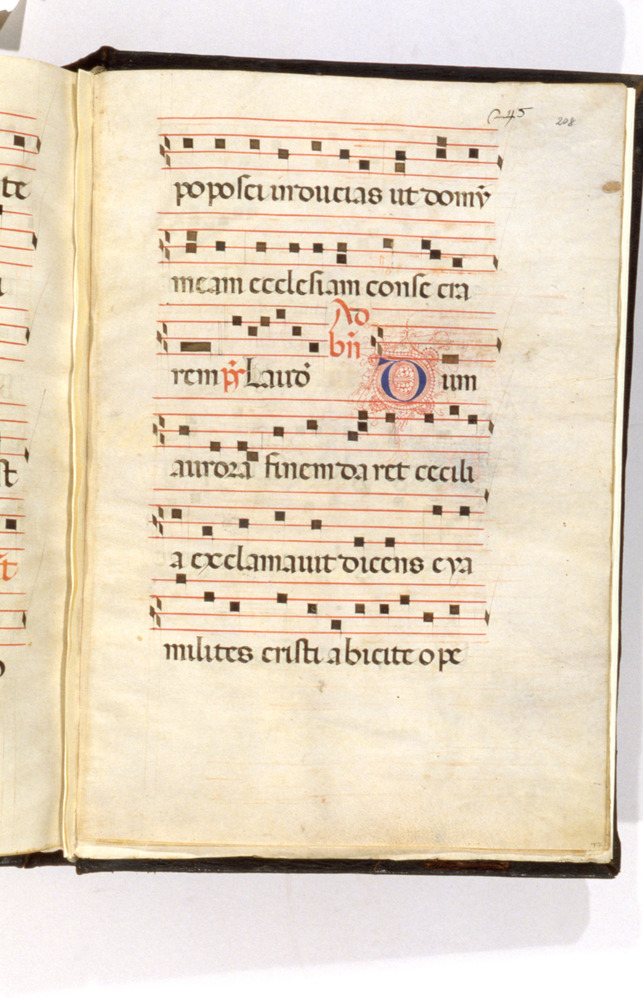 te
poposci inducias ut domũ
meam ecclesiam conse cra
Ad
bñ
rem p̃s Laud̃
Dum
aurora finem da ret cecili
a exclamavit dicens eya
milites cristi abicite ope